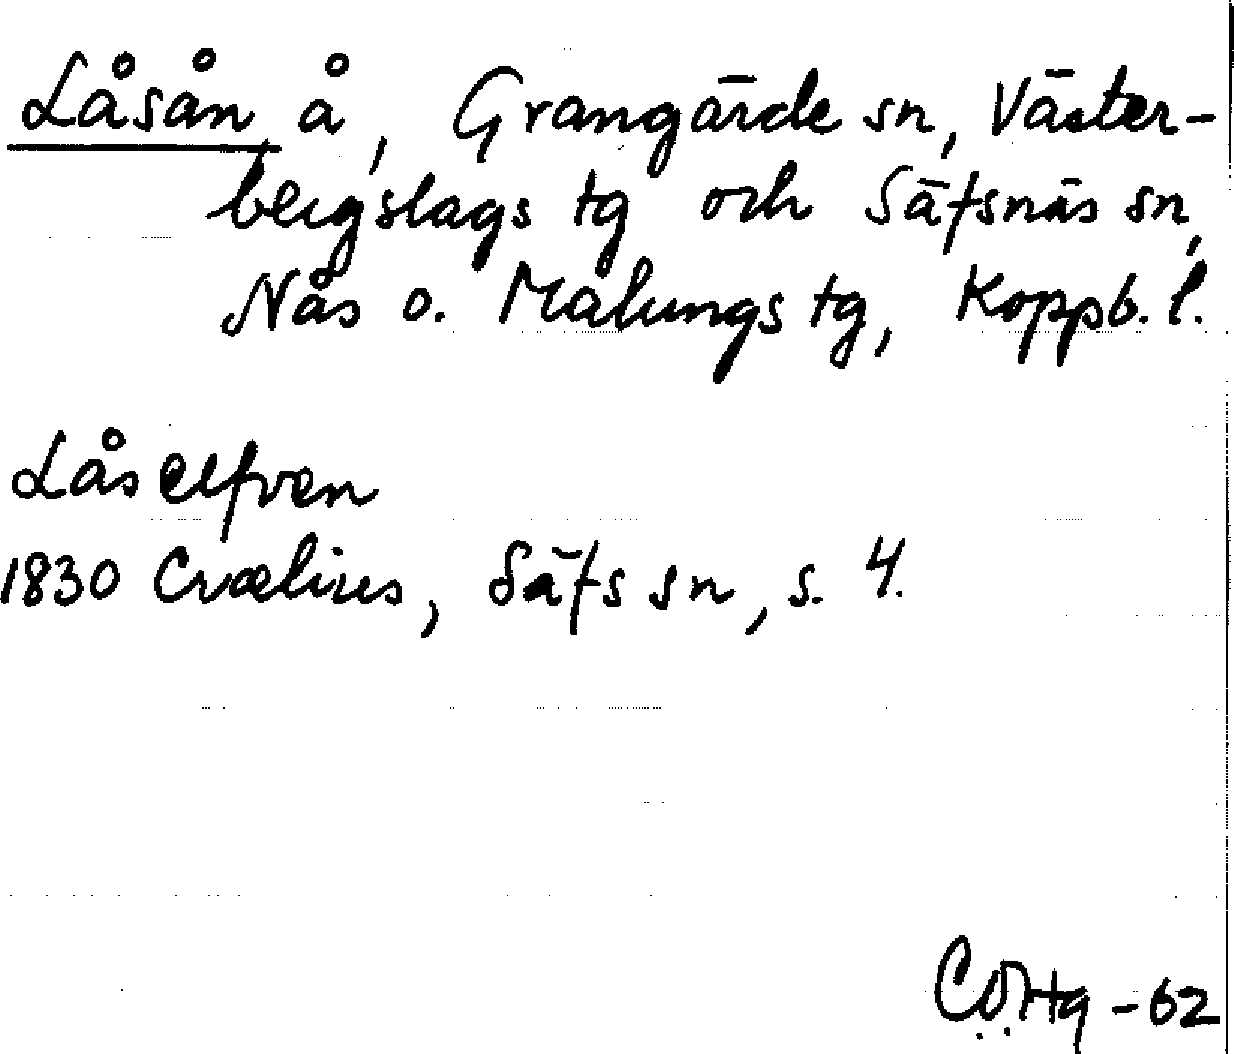 Låsån å, Grangärde sn, Väster-
bergslags tg och Säfsnäs sn,
Nås o. Malungs tg, Koppb. l.
Låselfven
1830 Crælius, Säfs sn, s. 4.
-62